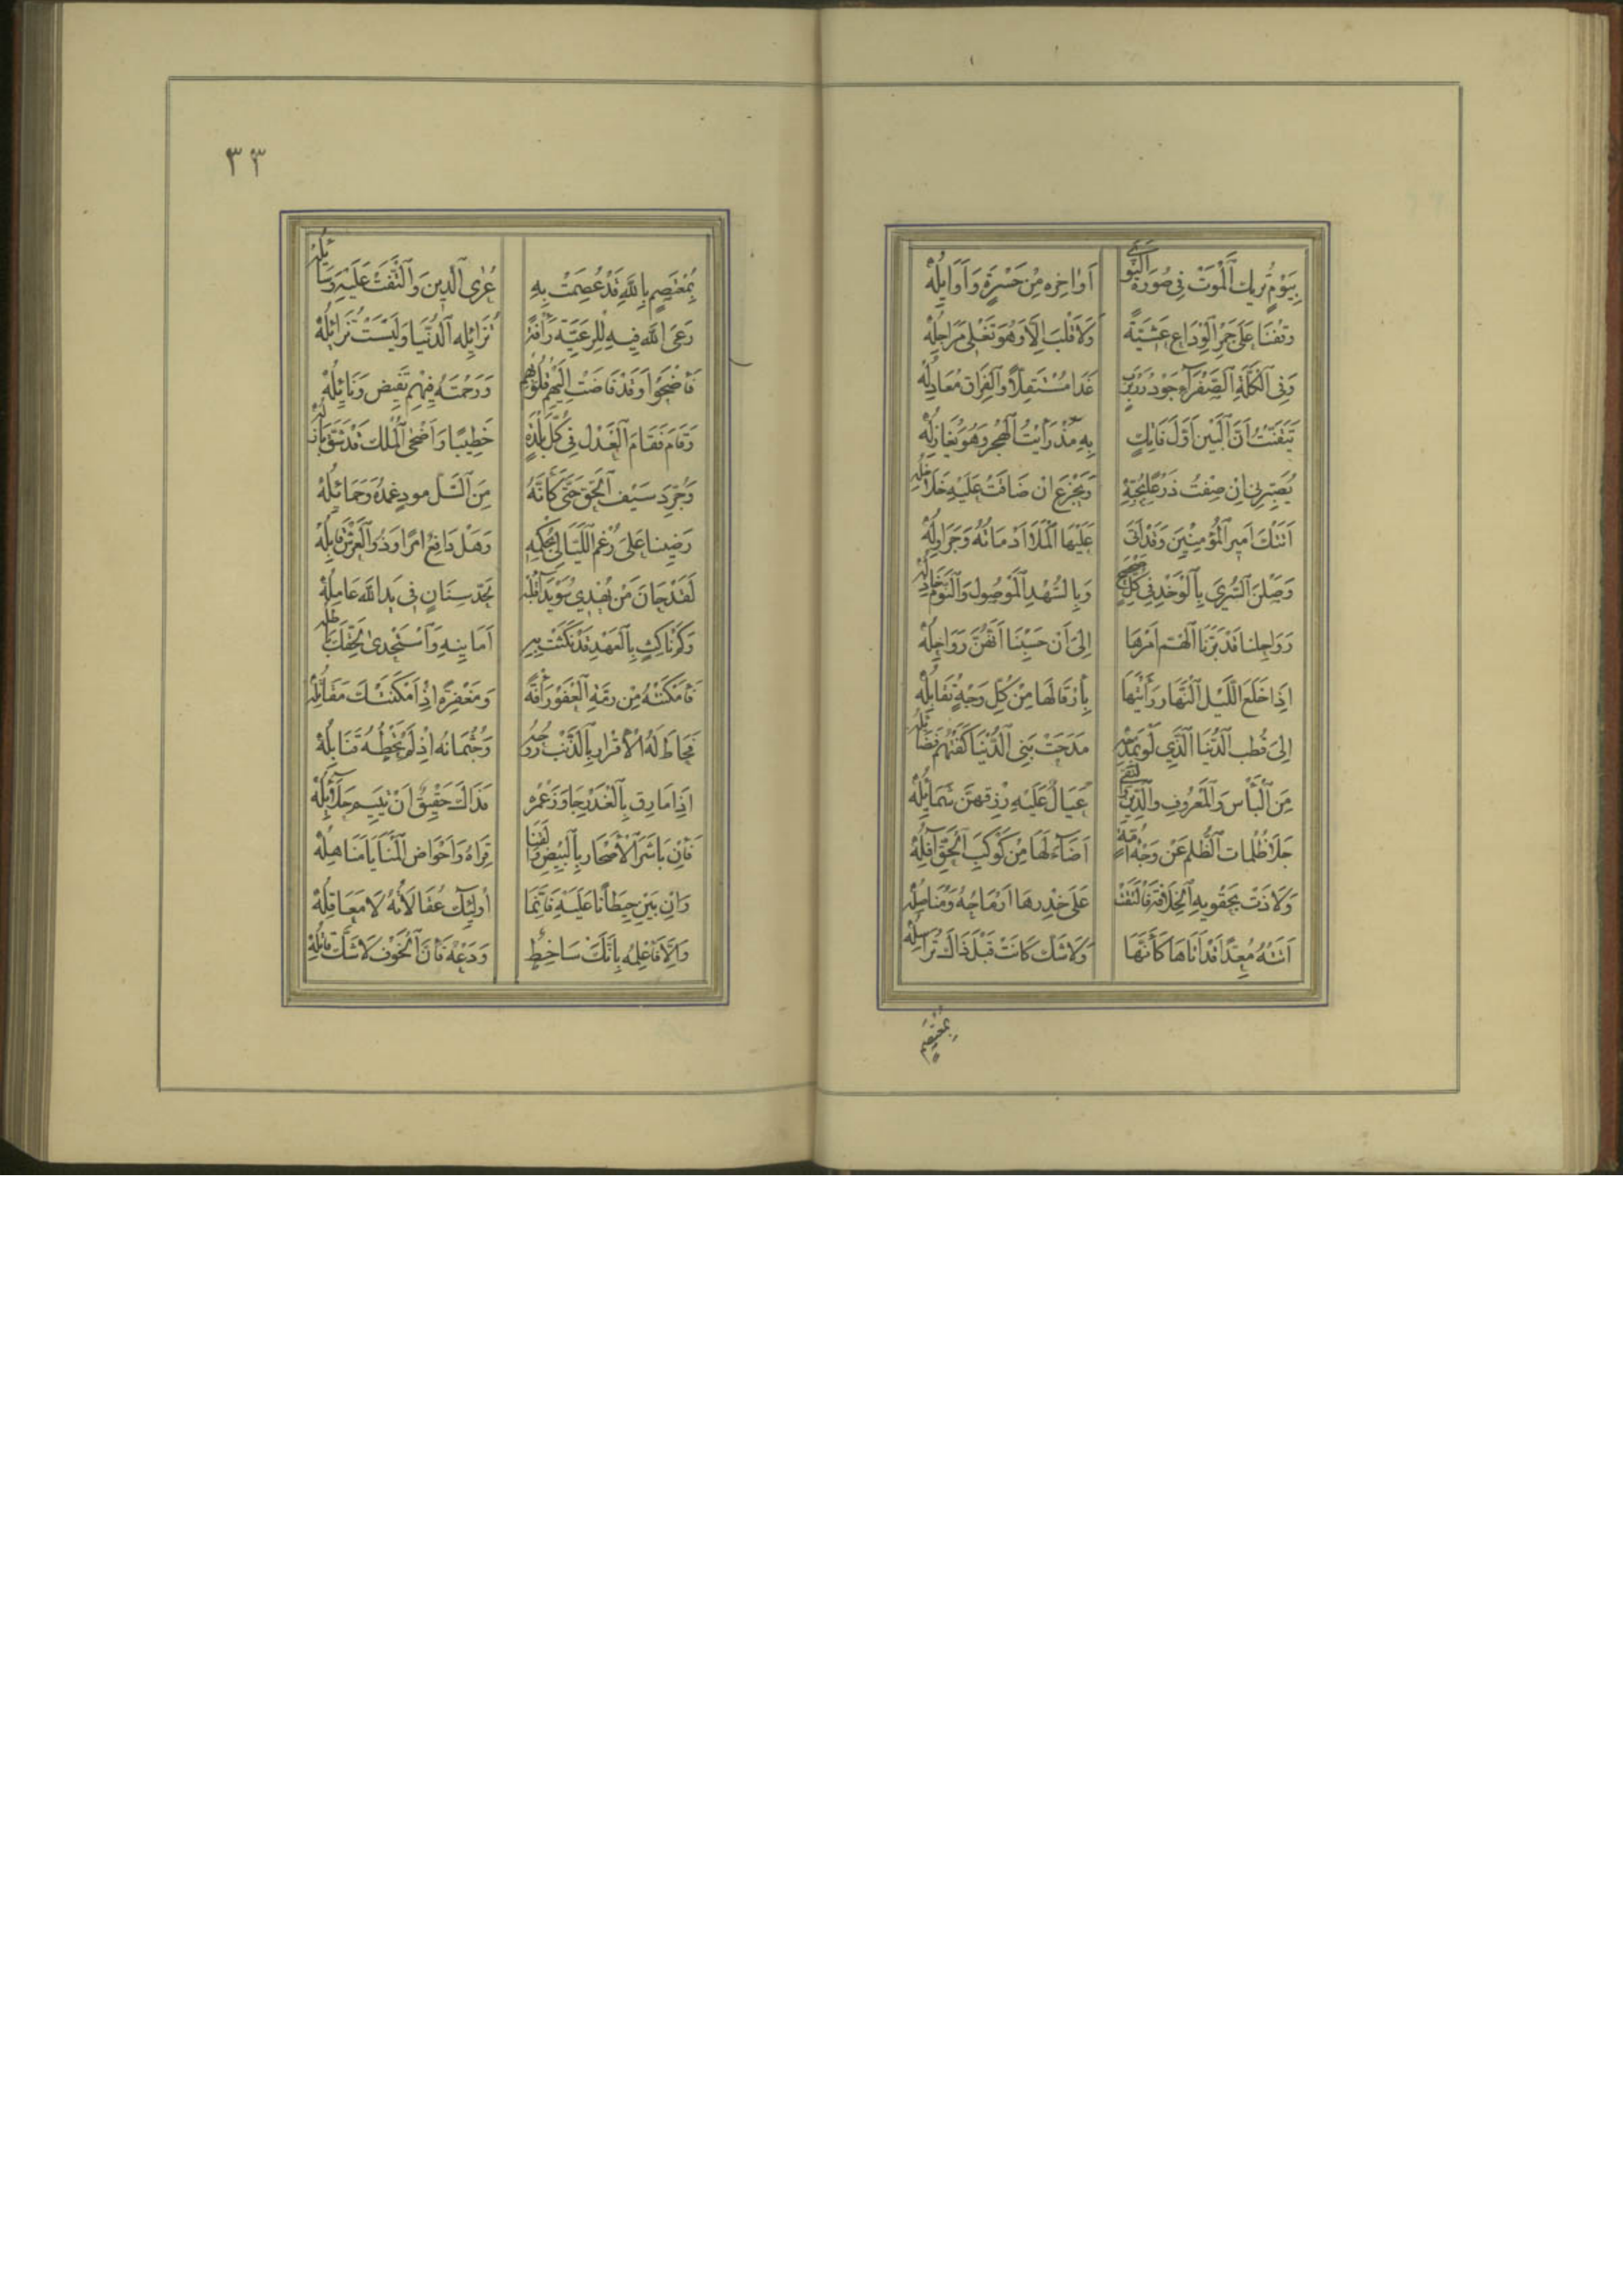 بِيَوْمٍ تُريك اَلْمَوتْ فِي صُورَةِ اَلنَّوَى اَوَاخِره مِنْ حَسْرَةٍ وَاَوَايِلُهْ
وَقَفْنَا عَلَى جَمْرِ اَلْوِدَاعِ عَشِيَّةً وَلَا قَلْبَ اِلَّا وَهُوَ تَغْلِى مَرَاجِلُهْ
وَفِي اَلْكَلَّةِ اَلصَّفْرَآءِ جَوْذُر رَبْرَبٍ غَدَا مُسْتَقِلًّا وَاَلْفِرَاق مُعَادِلُهْ
تَيَقَّنْتُ اَنَّ اَلْبَيْنِ اَوَّل فَاتِكٍ بِهِ مُذْ رَأَيْتُ اَلْهَجْر وَهُوَ يُغَازِلُهْ
يُصَبِّرنِي اِنْ ضِقْتُ ذَرْعًا بِحُبِّهِ وَيَجْزَع اِنْ ضَاقَتْ عَلَيْهِ خَلَاخِلُهْ
اَتَتْكَ اَمِير اَلْمُؤْمِنِينَ وَقَدْ اَتَى عَلَيْهَا اَلْمَلَا اَدْمَاثُهُ وَجَرَاوِلُهْ
وَصَلْنَ اَلسُّرَى بِاَلْوَخْدِ فِي كُلِّ صَحْصَحٍ وَبِالسُّهْدِ اَلْمَوْصُول وَاَلنَّوْم خَاذِلُهْ
رَوَاحِلنَا قَدْ بَزَّنَا اَلْهَمّ اَمْرَهَا اِلَى اَنْ حَسِبْنَا اَنَّهُنَّ رَوَاحِلُهْ
اِذَا خَلَعَ اَللَّيْل اَلنَّهَار رَأَيْتَهَا بِاَرْقَالهَا مِنْ كُلِّ وَجْهٍ تُقَابِلُهْ
اِلَى قُطْبِ اَلدُّنْيَا اَلَّذِي لَوْ بِمَدْحِهِ مَدَحْتَ بَنِي اَلدُّنْيَا كَفَتْهُمْ فَضَائِلُهْ
مِنَ اَلْبَأْس وَاَلْمَعْرُوفِ وَالدِّينِ وَالتُّقَى عِيَالٌ عَلَيْهِ رِزْقهنَّ شَمَائِلُهْ
جَلَا ظُلُمَاتِ اَلظُّلْمِ عَنْ وَجْهِ اُمَّةٍ اَضَآءَ لَهَا مِنْ كَوْكَبِ اَلْحَقِّ آفِلُهْ
وَلَاذَتْ بِحَقْوَيهِ اَلْخِلَافَة فَالْتَقَتْ عَلَى خِدْرهَا اَرْمَاحُهُ وَمَنَاصِلُهْ
اَتَتْهُ مُعِدًّا قَدْ اَتَاهَا كَأَنَّهَا وَلَا شَكَّ كَانَتْ قَبْلَ ذَاكَ تُرَاسِلُهْ
بمعتصم
٣٣
بِمُعْتَصِمٍ بِاللهِ قَدْ عُصِمَتْ بِهِ عُرَى اَلدِّينِ وَاَلْتَفَّتْ عَلَيْهِ وَسَائِلُهْ
رَعَى اللهَ فِيهِ لِلرَّعِيَّةِ رَأْفَةً تُزَائِلُه اَلدُّنْيَا وَلَيْسَتْ تُزَائِلُهْ
فَأَضْحَوْا وَقَدْ فَاضَتْ اِلَيْهِمْ قُلُوبُهُمْ وَرَحْمَتَهُ فِيْهِمْ تَفِيض وَنَائِلُهْ
وَقَامَ فَقَامَ اَلْعَدْل فِي كُلِّ بَلْدَةٍ خَطِيبًا وَاَضْحَى اَلْمُلْك قَدْ شَقَّ بَازِلُهْ
وَجُرِّدَ سَيْف اَلْحَقِّ حَتَّى كَأَنَّهُ مِنَ اَلسَّلّ مودٍ غِمْدُهُ وَحَمَائِلُهْ
رَضِينَا عَلَى رُغْمِ اَللَّيَالِي بِحُكْمِهِ وَهَلْ دَافِعٌ اَمْرًا وَذُو اَلْعَرْشِ قَابِلُهْ
لَقَدْ حَانَ مَنْ يُهْدِي سُوَيْدَآءَ قَلْبِهِ لِحَدِّ سِنَانٍ فِي يَدِ اللهِ عَامِلُهْ
وَكَمْ نَاكِثٍ بِاَلْعَهْدِ قَدْ نَكَثَتْ بِهِ اَمَانِيهِ وَاَسْتَخْذَى لِحَقِّكَ بَاطِلُهْ
فَأَمْكَنْتَهُ مِنْ رِمَّةِ اَلْعَفْوِ رَأْفَةً وَمَغْفِرَةً اِذْ اَمْكَنَتْكَ مَقَاتِلُهْ
فَحَاطَ لَهُ الْاَقْرَار بِالذَّنْبِ رُوحَهُ وَجُثْمَانهُ اِذْ لَمْ تَحُطْهُ قَنَابِلُهْ
اِذَا مَارِق بِاَلْغَدْرِ حَاوَزَ عُمْرهُ فَذَاكَ حَقِيقٌ اَنْ تَئِيم حَلَآئِلُهْ
فَاِنْ بَاشَرَ اَلْاَصْحَار بِاَلْبِيْضِ وَاَلْقَنَا قِرَاهُ وَاَحْوَاض اَلْمَنَايَا مَنَاهِلُهْ
وَاِنْ يَبْنِ حِيطَانًا عَلَيْهِ فَاِنَّمَا اُولَئِكَ عُقَالَاتُهُ لَا مَعَاقِلُهْ
وَاِلَّا فَاَعْلِمْهُ بِاَنَّكَ سَاخِطٌ وَدَعْهُ فَاِنَّ اَلْخَوْف لَا شَكَّ قَاتِلُهْ